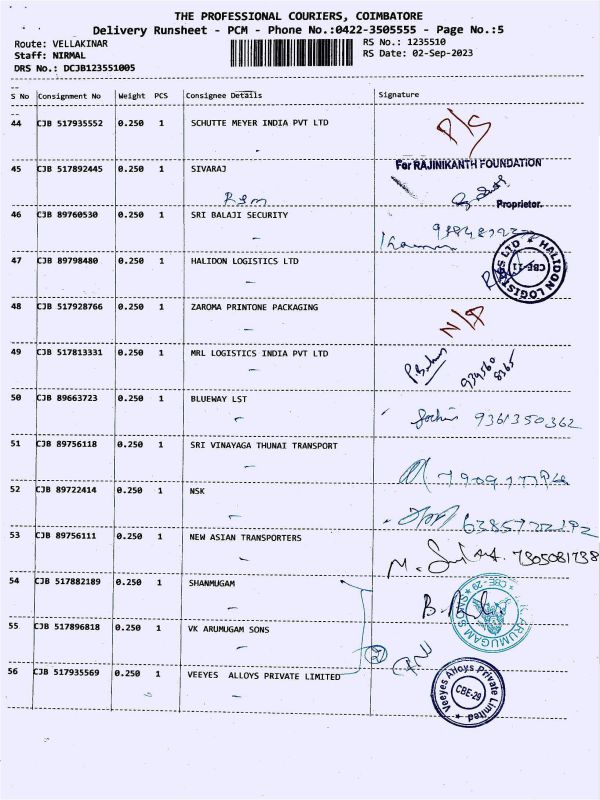 THE PROFESSIONAL COURIERS, COIMBATORE
Delivery Runsheet - PCM - Phone No.:0422-3505555 - Page No.:5
Route: VELLAKINAR RS No.: 1235510
Staff: NIRMAL RS Date: 02-Sep-2023
DRS No.: DCJB123551005
S No Consignment No Weight PCS Consignee Details Signature
44 CJB 517935552 0.250 1 SCHUTTE MEYER INDIA PVT LTD
For RAJINIKANTH FOUNDATION
45 CJB 517892445 0.250 1 SIVARAJ
Proprietor.
46 CJB 89760530 0.250 1 SRI BALAJI SECURITY
47 CJB 89798480 0.250 1 HALIDON LOGISTICS LTD
HALIDON LOGISTICS LTD
CBE-11
48 CJB 517928766 0.250 1 ZAROMA PRINTONE PACKAGING
N/A
49 CJB 517813331 0.250 1 MRL LOGISTICS INDIA PVT LTD
50 CJB 89663723 0.250 1 BLUEWAY LST
9361350362
51 CJB 89756118 0.250 1 SRI VINAYAGA THUNAI TRANSPORT
52 CJB 89722414 0.250 1 NSK
53 CJB 89756111 0.250 1 NEW ASIAN TRANSPORTERS
7305081738
54 CJB 517882189 0.250 1 SHANMUGAM
CBE-29
55 CJB 517896818 0.250 1 VK ARUMUGAM SONS
56 CJB 517935569 0.250 1 VEEYES ALLOYS PRIVATE LIMITED
Veeyes Alloys Private Limited
CBE-29